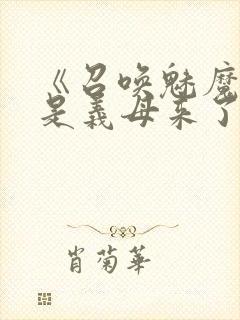 《召唤魅魔
是义母来了
肖菊华